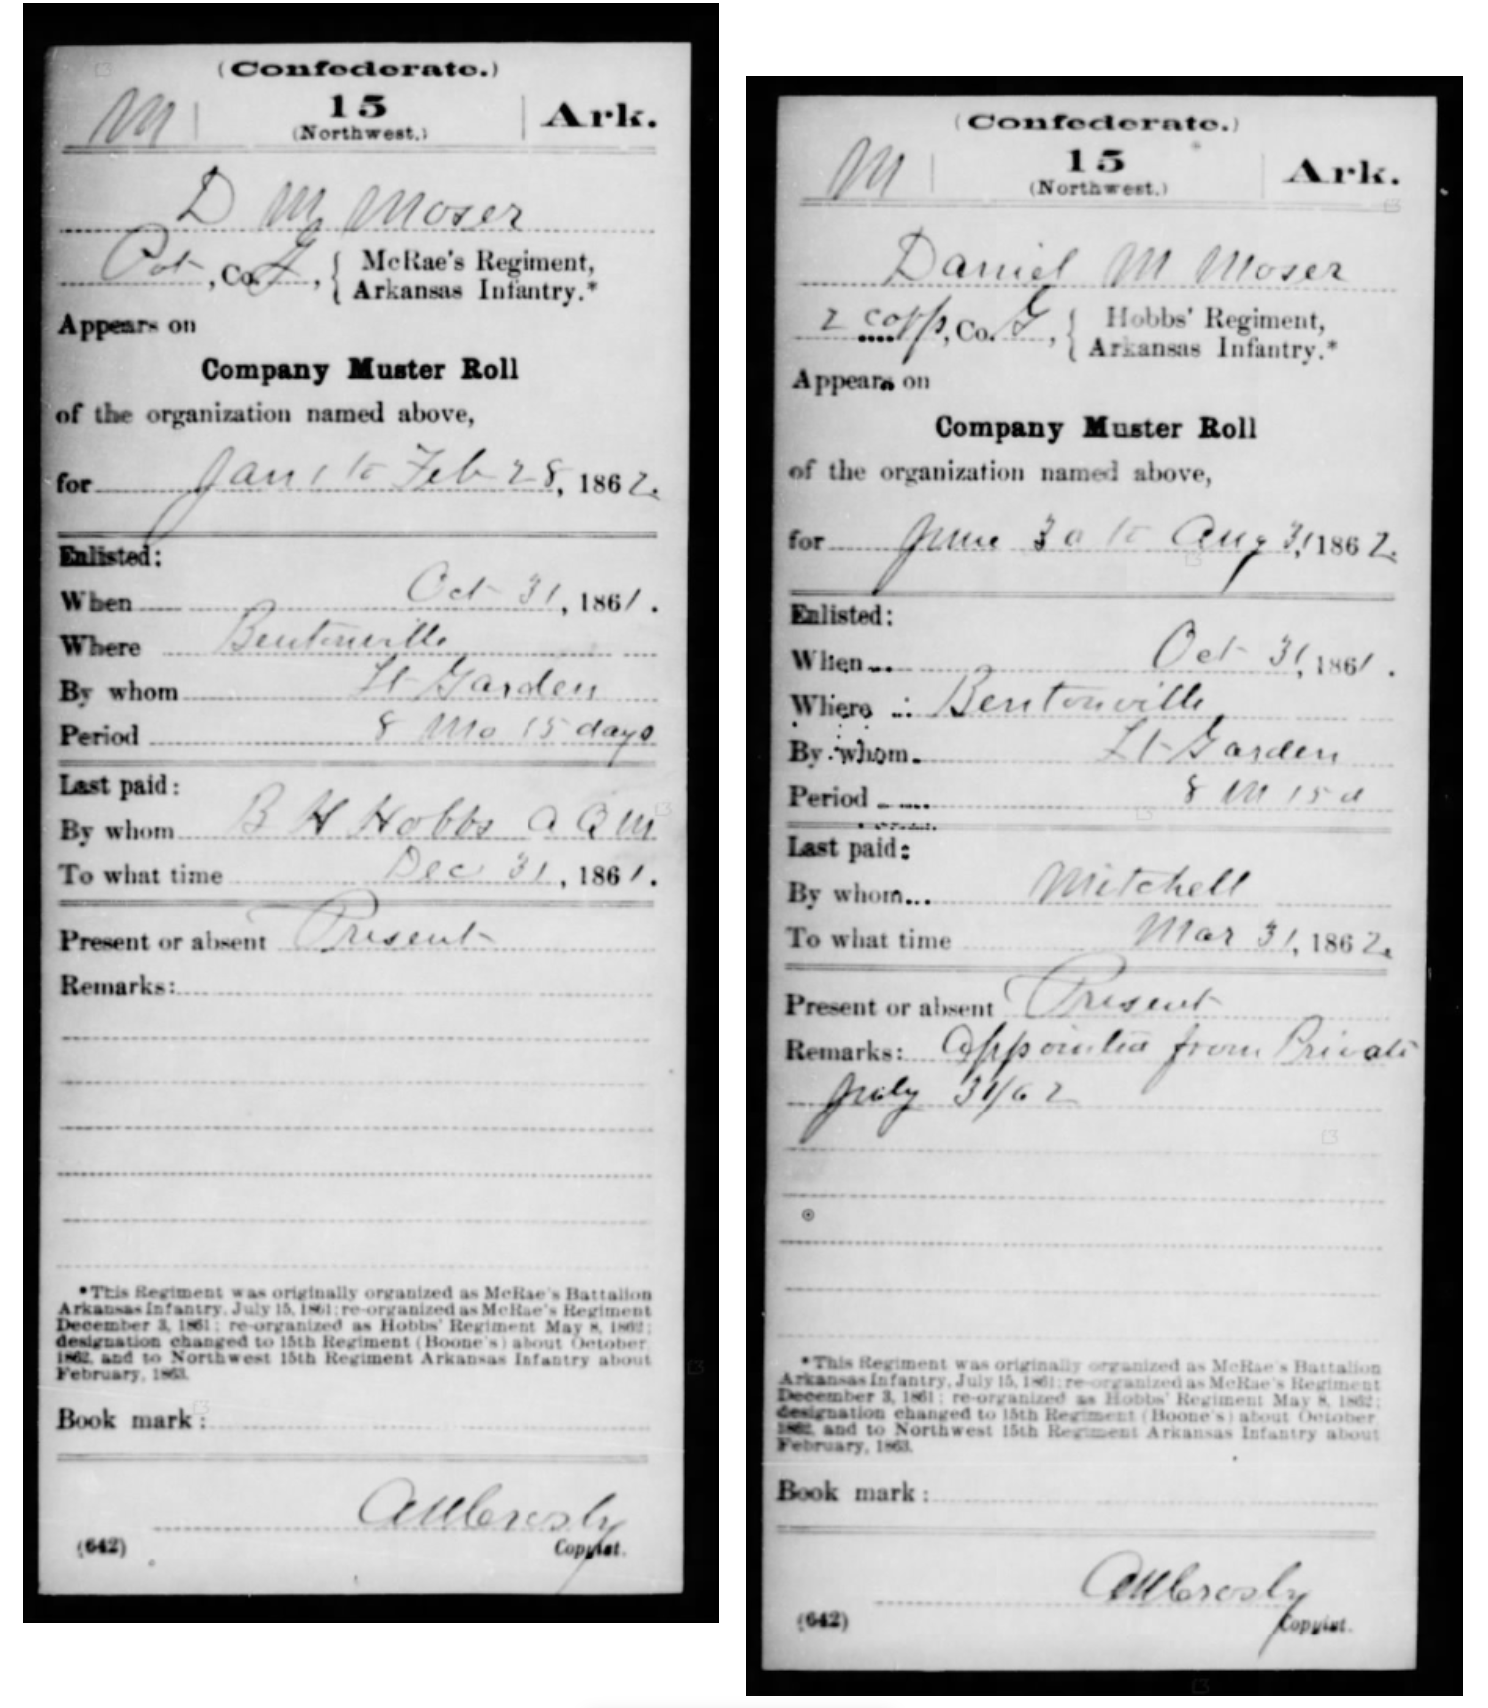 (Confederate.)
M | 15 | Ark.
(Northwest.)
D M Moser
Pvt, Co. G, { McRae's Regiment,
Arkansas Infantry.*
Appears on
Company Muster Roll
of the organization named above,
for Jan 1 to Feb 28, 1862.
Enlisted:
When Oct 31, 1861.
Where Bentonville
By whom Lt Garden
Period 8 Mo 15 days
Last paid:
By whom B H Hobbs A Q M
To what time Dec 31, 1861.
Present or absent Present
Remarks:
*This Regiment was originally organized as McRae's Battalion
Arkansas Infantry, July 15, 1861; re-organized as McRae's Regiment
December 3, 1861; re-organized as Hobbs' Regiment May 8, 1862;
designation changed to 15th Regiment (Boone's) about October,
1862, and to Northwest 15th Regiment Arkansas Infantry about
February, 1863.
Book mark:
(642)
Copyist.
(Confederate.)
M | 15 | Ark.
(Northwest.)
Daniel M Moser
2 corp, Co. G, { Hobbs' Regiment,
Arkansas Infantry.*
Appears on
Company Muster Roll
of the organization named above,
for June 30 to Aug 31, 1862.
Enlisted:
When Oct 31, 1861.
Where Bentonville
By whom Lt Garden
Period 8 M 15 d
Last paid:
By whom Mitchell
To what time Mar 31, 1862.
Present or absent Present
Remarks: Appointed from Private
July 31/62
*This Regiment was originally organized as McRae's Battalion
Arkansas Infantry, July 15, 1861; re-organized as McRae's Regiment
December 3, 1861; re-organized as Hobbs' Regiment May 8, 1862;
designation changed to 15th Regiment (Boone's) about October,
1862, and to Northwest 15th Regiment Arkansas Infantry about
February, 1863.
Book mark:
(642)
Copyist.